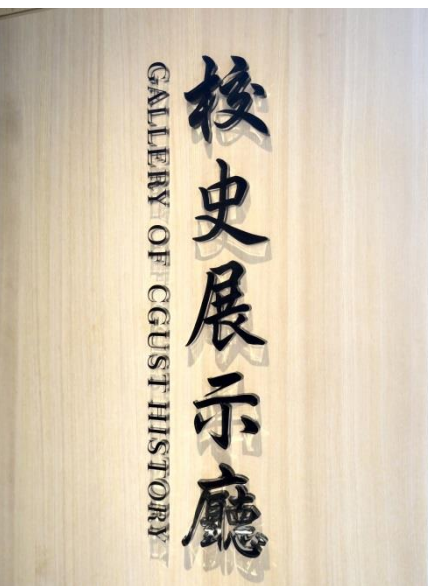 校史展示廳
GALLERY OF CGUST HISTORY